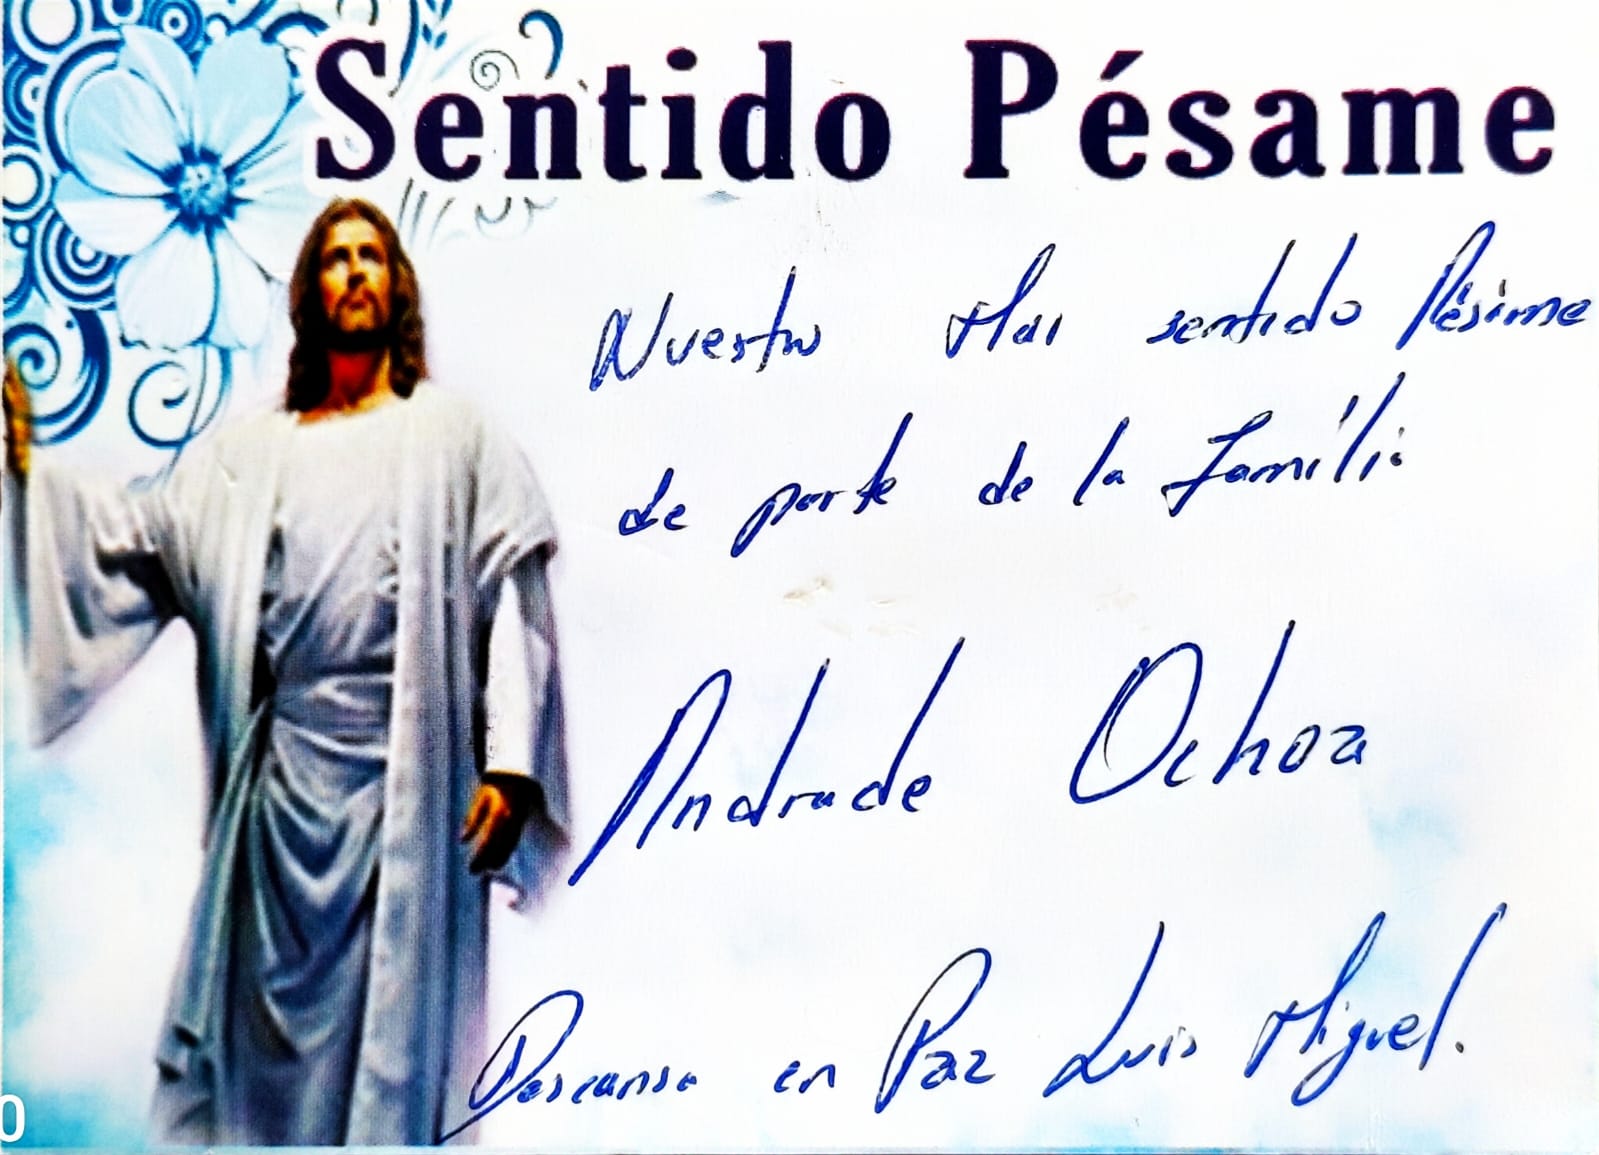 Sentido Pésame
Nuestro Mas sentido Pésame
de parte de la Família
Andrade Ochoa
Descansa en Paz Luis Miguel.
0